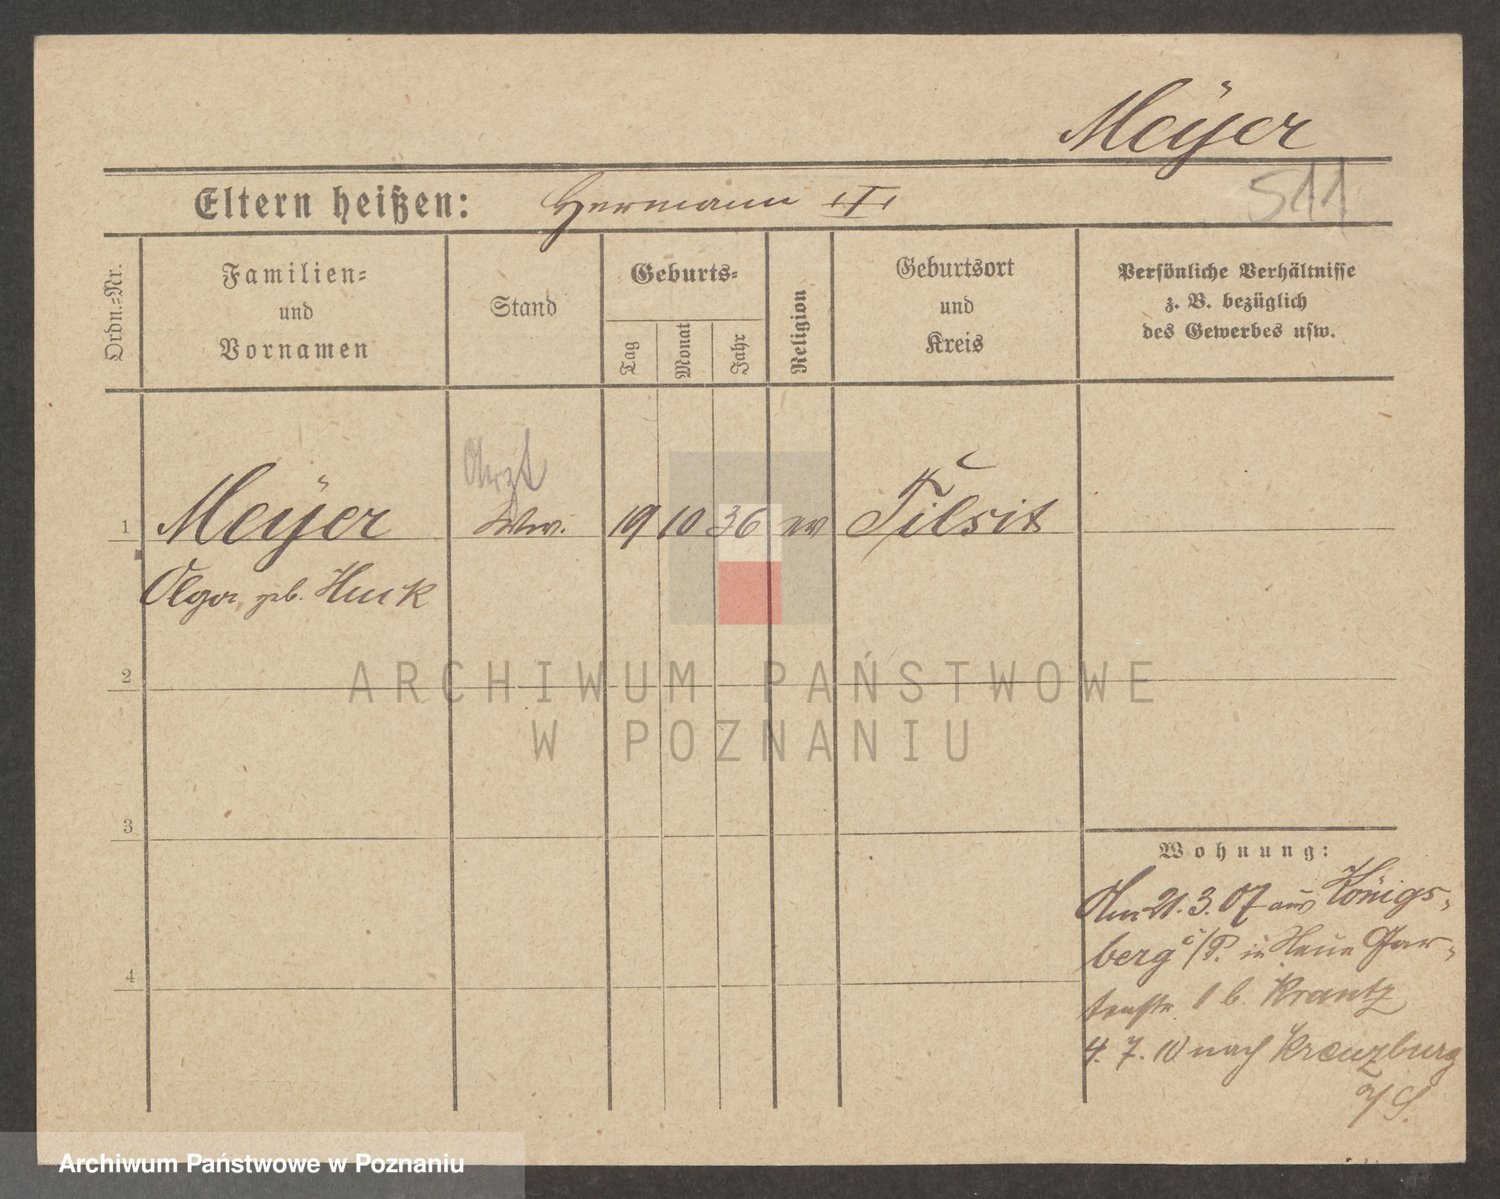 Meÿer
Eltern heißen: Hermann III
511
Ordn.=Nr.
Familien=
und
Vornamen
Stand
Geburts=
Tag
Monat
Jahr
Religion
Geburtsort
und
Kreis
Persönliche Verhältnisse
z. B. bezüglich
des Gewerbes usw.
Arzt
1 Meÿer Ww. 19 10 36 ev Tilsit
Olga geb. Huck
2
3
4
Wohnung:
Am 21.3.07 aus Königs-
berg i/P. in Neue Gar-
tenstr. 1 b. Krantz
4. 7. 10 nach Kreuzburg
O/S.
ARCHIWUM PAŃSTWOWE
W POZNANIU
Archiwum Państwowe w Poznaniu